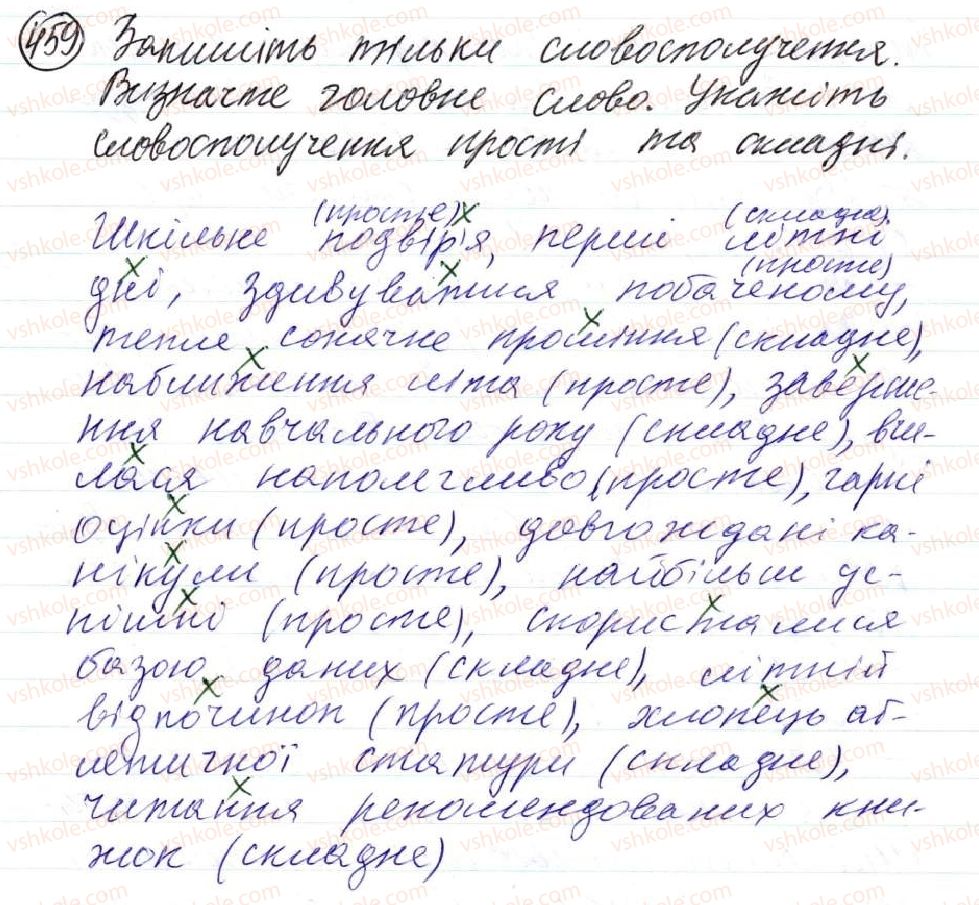 459 Запишіть тільки словосполучення.
Визначте головне слово. Укажіть
словосполучення прості та складні.
(просте) х (складне)
Шкільне подвір'я, перші літні
х х (просте)
дні, здивуватися побаченому,
х
тепле сонячне проміння (складне),
х х
наближення літа (просте), заверше-
ння навчального року (складне), вчи-
х
лася наполегливо (просте), гарні
х
оцінки (просте), довгождані ка-
х
нікули (просте), найбільш ус-
х х
пішні (просте), скористалися
базою даних (складне), літній
х х
відпочинок (просте), хлопець ат-
летичної статури (складне),
х
читання рекомендованих кни-
жок (складне)